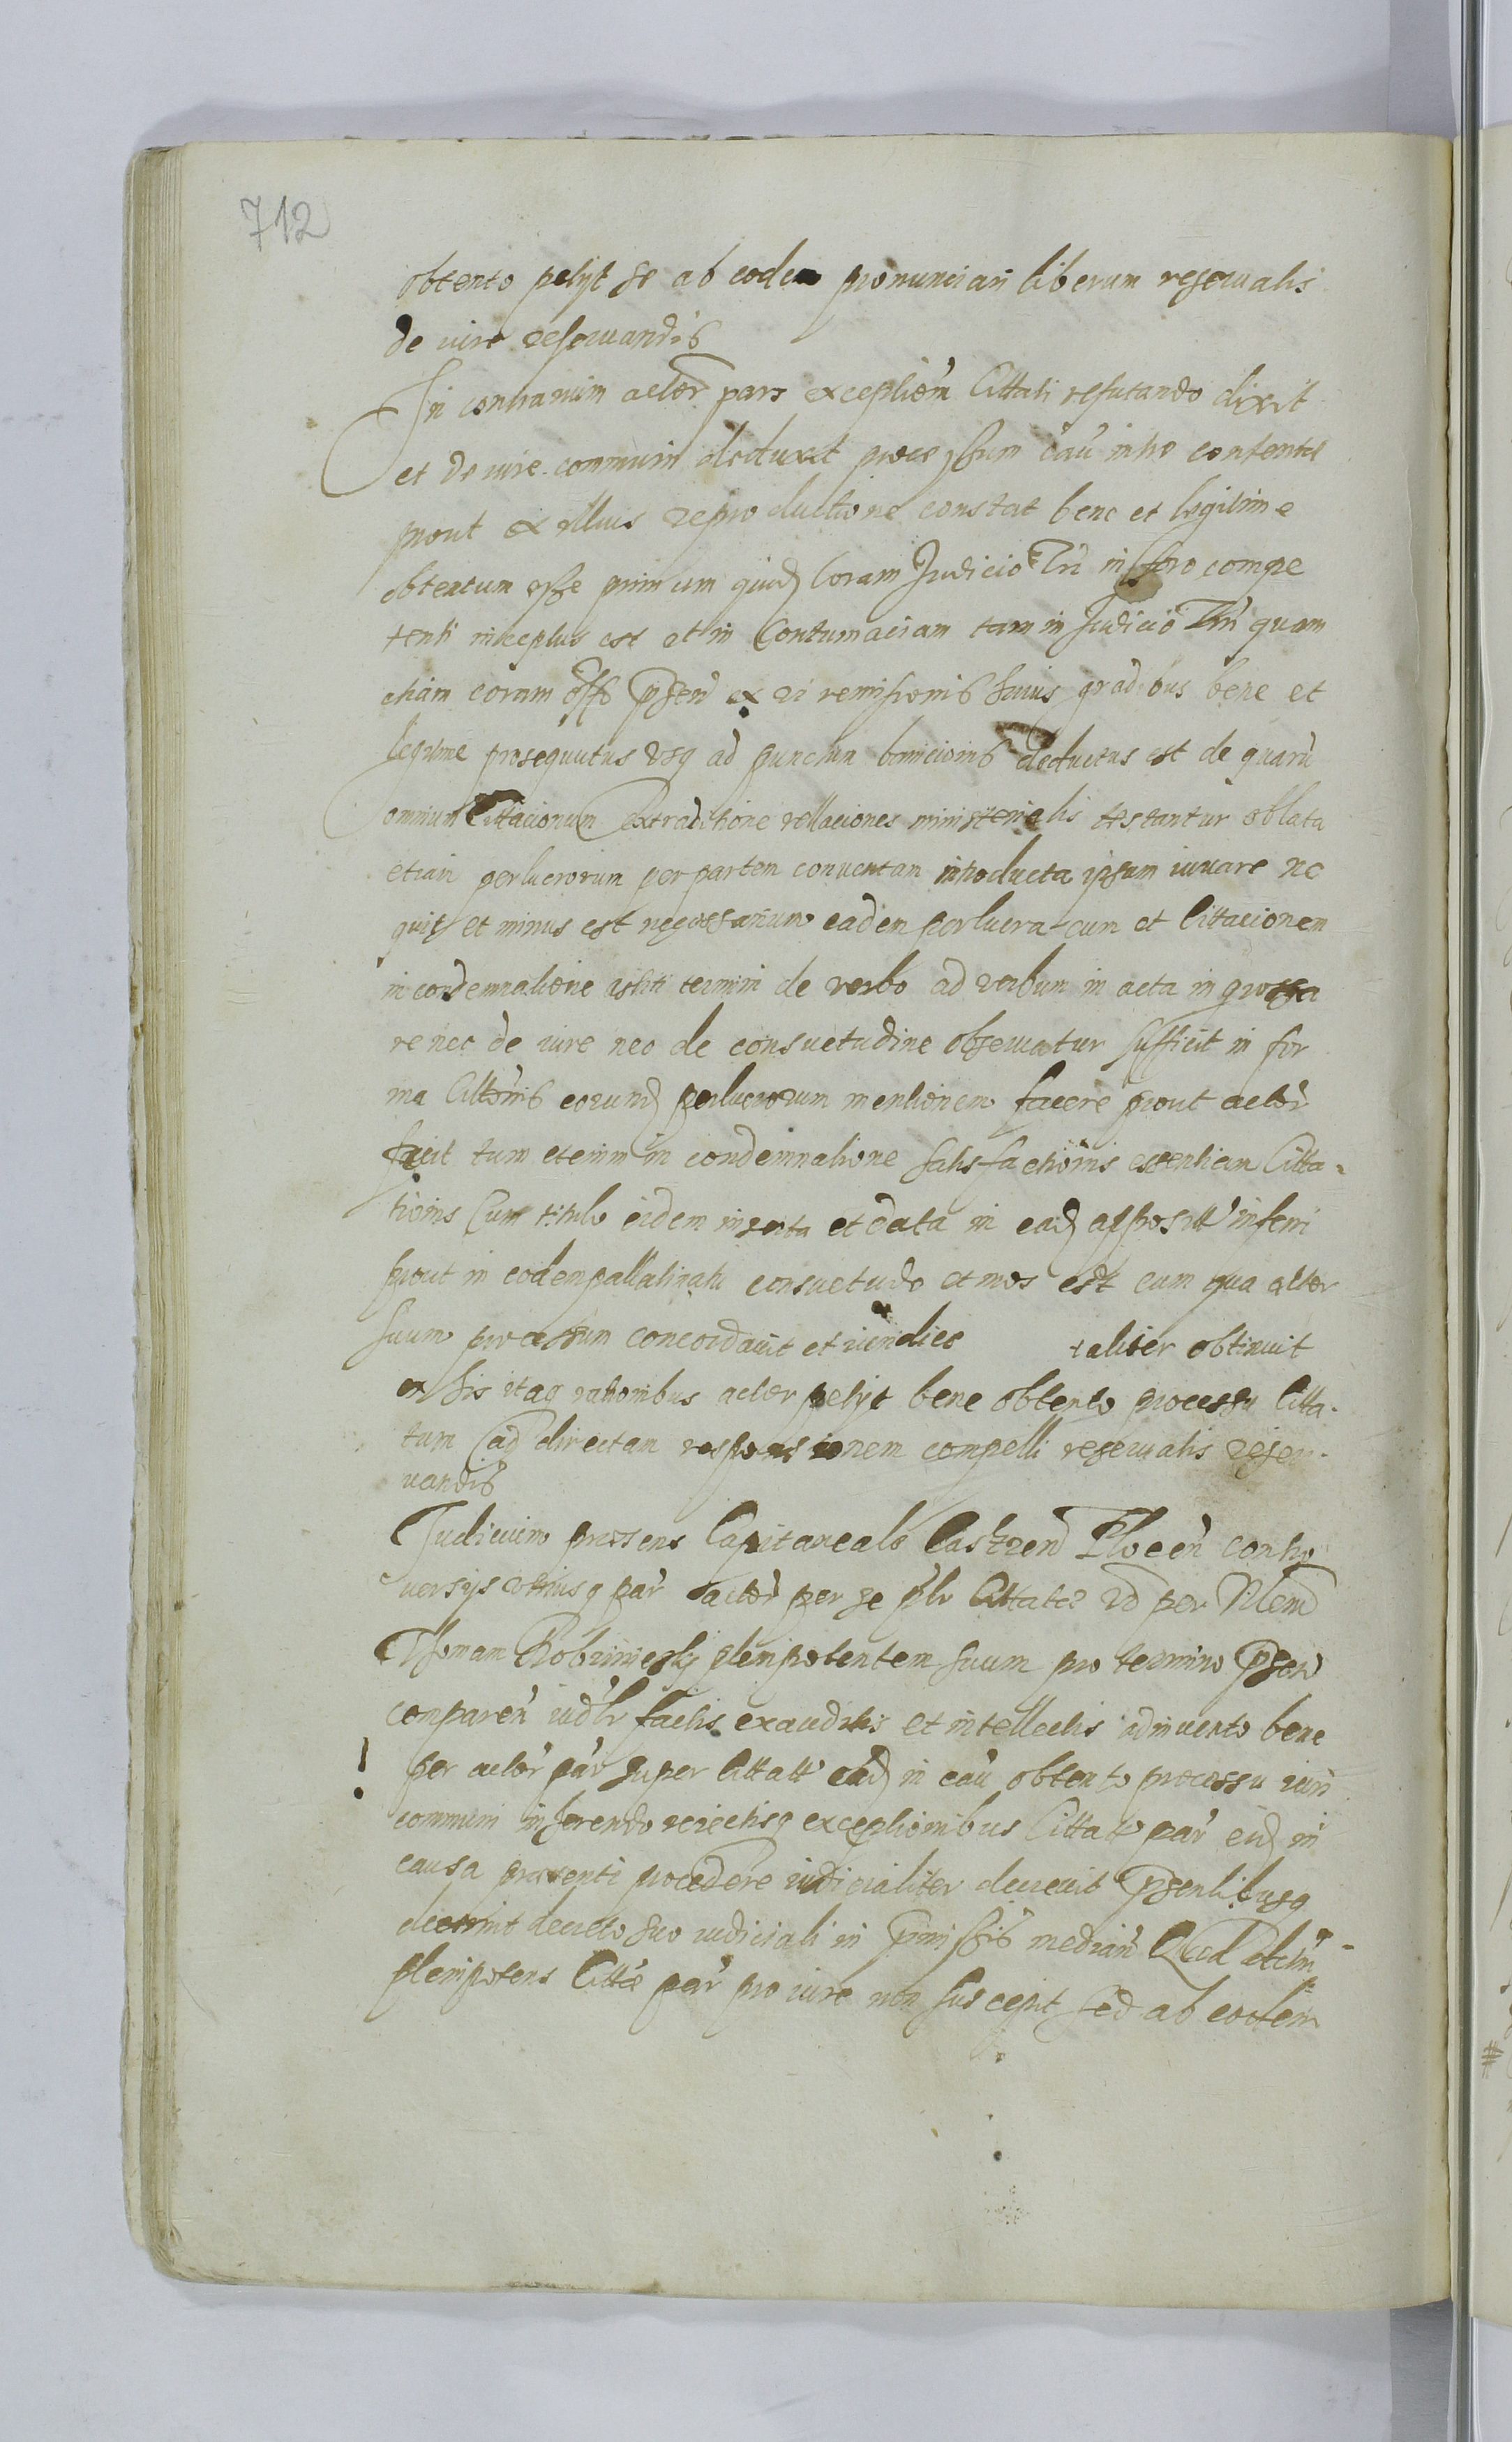 712
obtento petyt se ab eodem pronunciari liberum reservatis
de iure reservandis
In contrarium actor pars exceptiom Cittati refutando dixit
et de iure communi deduxit processum cau intro contentu
prout ex illius reproductione constat bene et legitime
obtentum esse primum quid Coram Judicio Tri in foro compe
tenti inceptus est et in Contumaciam tam in Judicio Tri quam
etiam coram Offo psen ex vi remissionis huius gradibus bene et
legitime prosequutus vsq ad punctum bannicionis deductus est de quaru
omnium Cittacionum extraditione rellaciones ministerialis testantur oblata
etiam perlucrorum per partem conventam introducta ipsum iuvare ne
quit et minus est necessarium eadem perlucra cum et Cittacionem
in condemnatione istiti termini de verbo ad verbum in acta ingrossa
re nec de iure nec de consuetudine observatur sufficit in for
ma Cittonis eorund perlucrorum mentionem facere prout actor
fecit tum etenim in condemnatione satisfactionis essentiam Citta
tionis Cum titulo eidem inserta et data in ead apposit inferri
prout in eodem pallatinatu consuetudo et mos est cum qua actor
suum processum concordavit et iuridice taliter obtinuit
ex his itaq rationibus actor petyt bene obtento processu Citta
tum ad directam responsionem compelli reservatis reser
vandis
Judicium praesens Capitaneale Castren contro
versys vtriusq par actor per se plr Cittatae vo per Nlem
Thomam plenipotentem suum pro termino psen
comparen iudlr factis exauditis et intellectis adinvento bene
per actor par super Cittatt ead in cau obtento processu iuri
communi inherendo reiectisq exceptionibus Cittat par eid in
causa praesenti procedere iudicialiter decrevit psentibusq
decernit decreto suo iudiciali in pmissis median Quod
plenipotens Cittae par pro iure non suscepit sed ab eodem